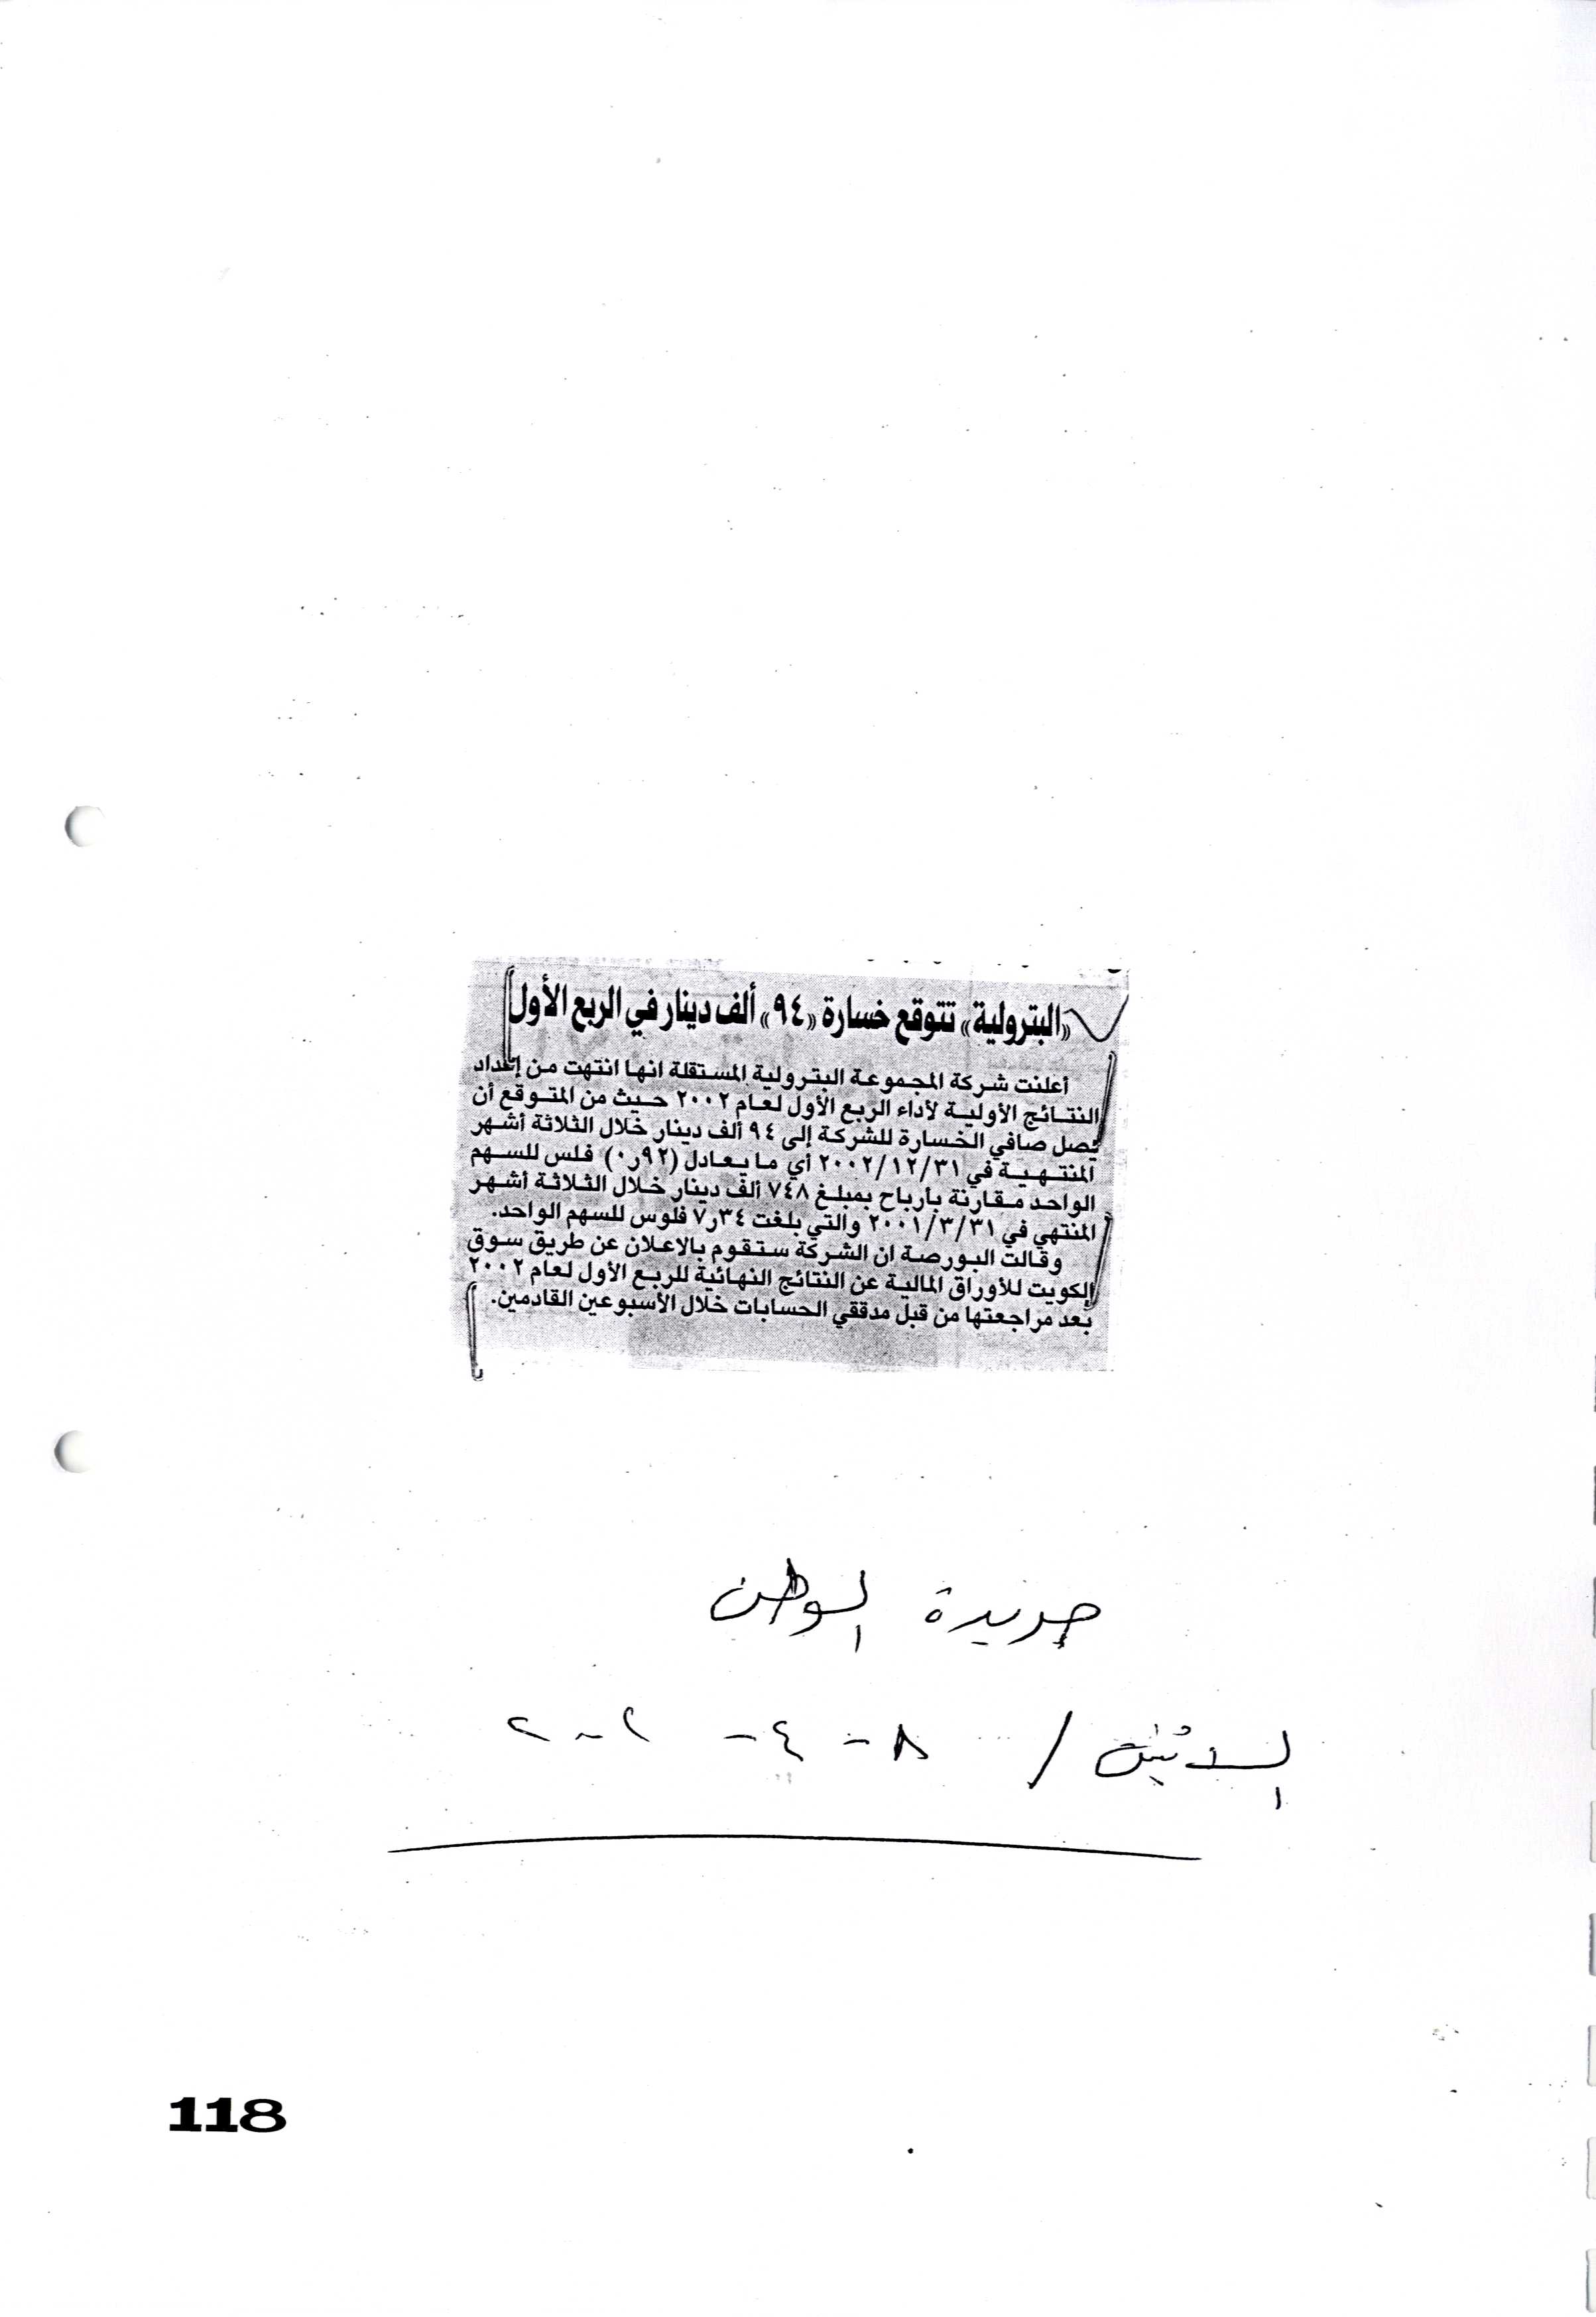 «البترولية» تتوقع خسارة «٩٤» ألف دينار في الربع الأول
أعلنت شركة المجموعة البترولية المستقلة انها انتهت من إعداد
النتائج الأولية لأداء الربع الأول لعام ٢٠٠٢ حيث من المتوقع أن
يصل صافي الخسارة للشركة إلى ٩٤ ألف دينار خلال الثلاثة أشهر
المنتهية في ٢٠٠٢/١٢/٣١ أي ما يعادل (٩٢ر٠) فلس للسهم
الواحد مقارنة بارباح بمبلغ ٧٤٨ ألف دينار خلال الثلاثة أشهر
المنتهي في ٢٠٠١/٣/٣١ والتي بلغت ٣٤ر٧ فلوس للسهم الواحد.
وقالت البورصة ان الشركة ستقوم بالاعلان عن طريق سوق
الكويت للأوراق المالية عن النتائج النهائية للربع الأول لعام ٢٠٠٢
بعد مراجعتها من قبل مدققي الحسابات خلال الأسبوعين القادمين.
جريدة الوطن
الاثنين / ٨ - ٤ - ٢٠٠٢
118